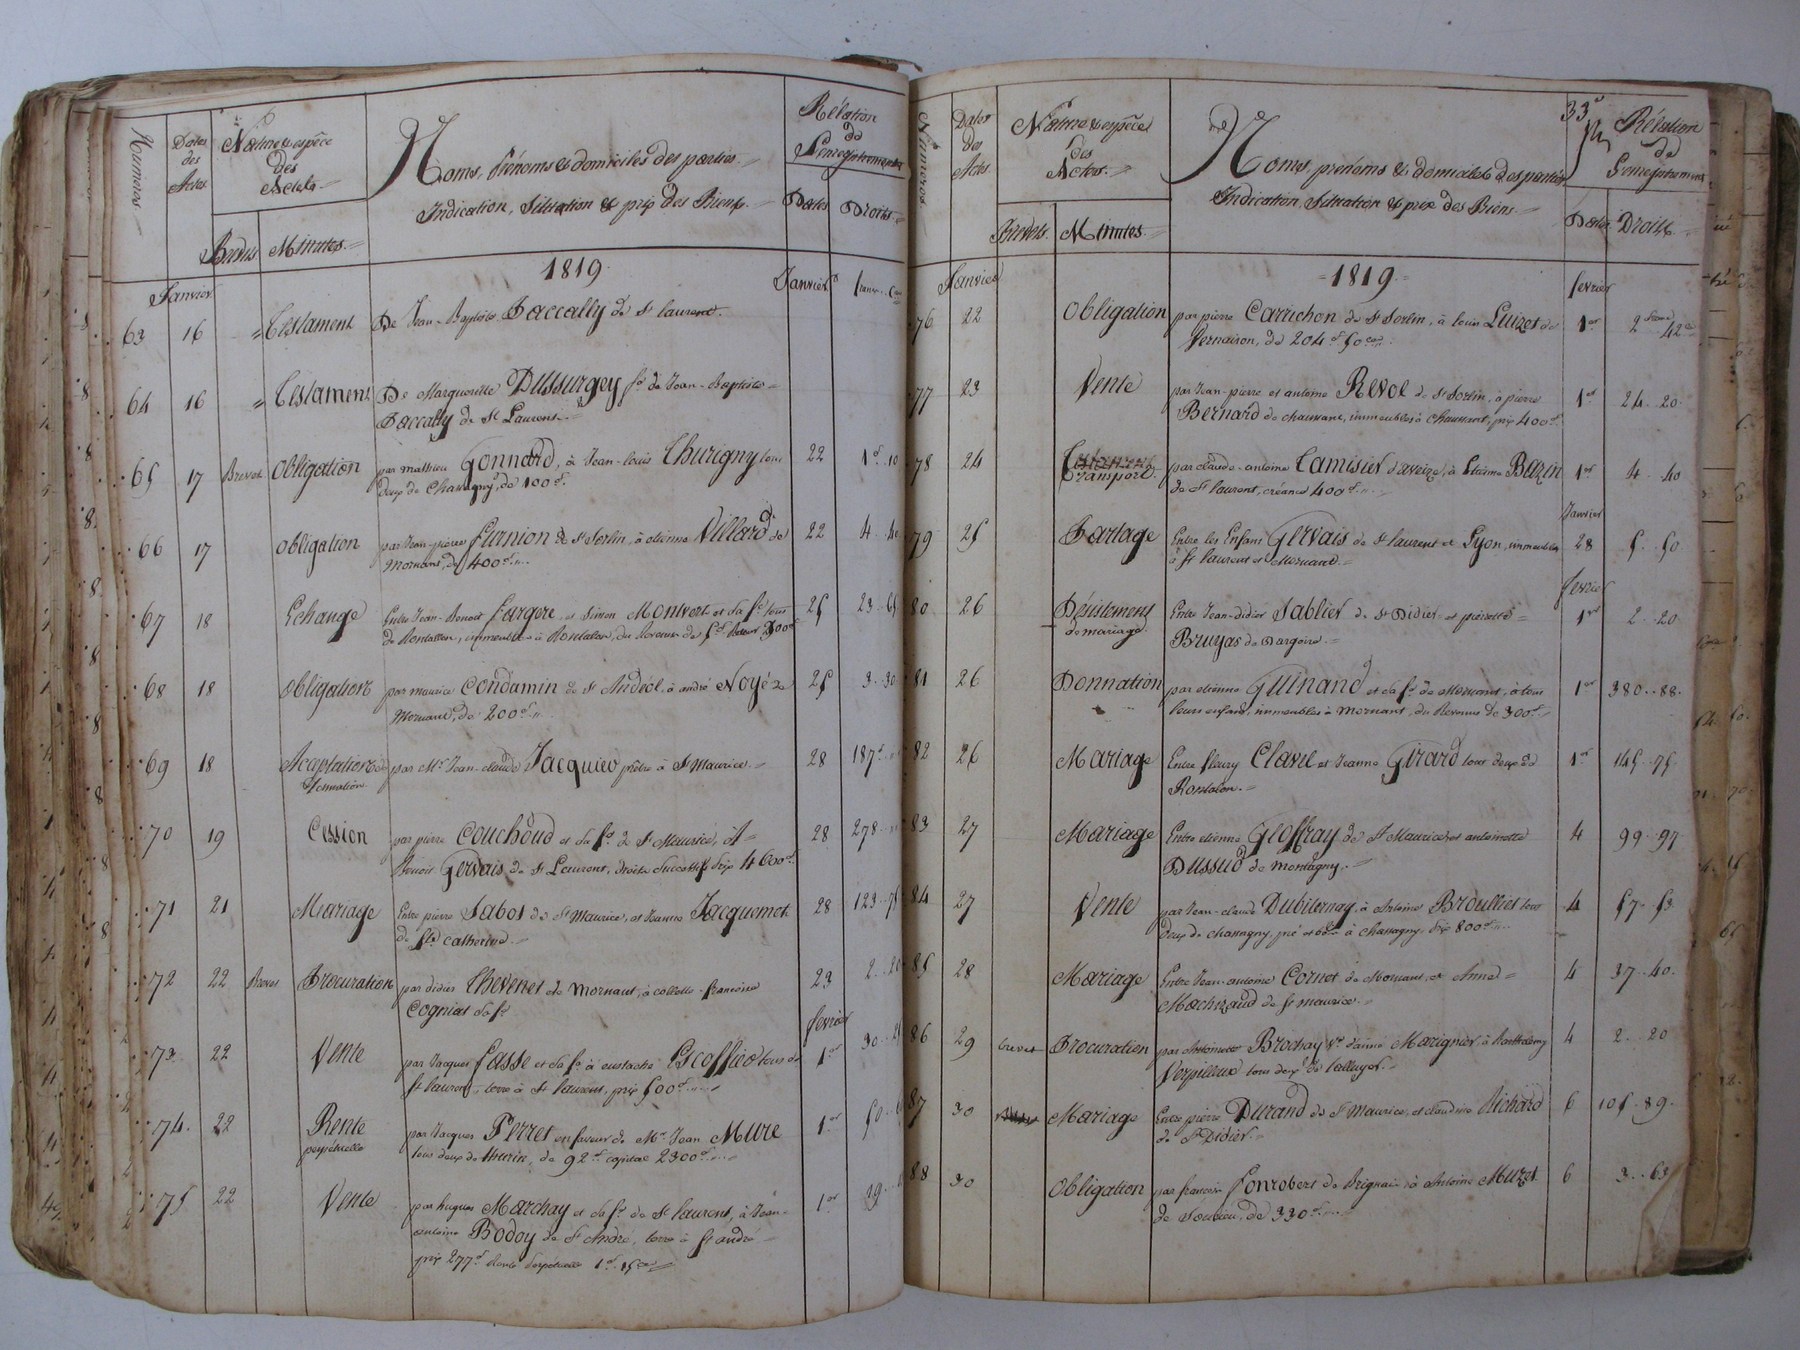 Numeros
Dates des Actes
Nature & espèce des Actes
Noms, Prénoms & domiciles des parties
Indication, Situation & prix des Biens
Rélation de l'enregistrement
Brevets Minutes
Dates Droits
1819
Janvier Janvier francs
63 16 Testament De Jean-Baptiste Paccally de St laurent
64 16 Testament De Marguerite Dussurgey fe de Jean-Baptiste
Paccally de St Laurent
65 17 Brevet Obligation par mathieu Gonnard, à Jean-louis Thurigny tous 22 1f 10
deux de Chassagny, de 100f
66 17 Obligation par Jean-pierre flunion de St Sorlin, à etienne Villard de 22 4 40
Mornant, de 400f
67 18 Echange Entre Jean-Benoit fargere et Simon Montvert et sa fe tous 25 23 65
de Rontalon, immeubles à Rontalon, du Revenu de
68 18 Obligation par maurice Condamin de St Andéol, à andré Noyé de 25 3 30
Mornant, de 200f
69 18 Acceptation de par Mr Jean-claude Jacquier prêtre à St Maurice 28 187f
donation
70 19 Cession par pierre Couchoud et sa fe de St Maurice, A 28 278
Benoit Gervais de St Laurent, droits Successifs prix 4600f
71 21 Mariage Entre pierre Sabot de St Maurice, et Jeanne Jacquemot 28 123 75
de Ste Catherine
72 22 Brevet Procuration par didier Thevenet de Mornant, à collette francoise 23 2 20
Cognias sa fe
fevrier
73 22 Vente par Jacques fasse et sa fe à eustache Escoffier tous de 1er 30 25
St laurent, terre à St laurent, prix 500f
74 22 Rente par Jacques Ferret en faveur de Mr Jean Mure 1er 50
perpétuelle tous deux de thurin, de 92f capital 2300f
75 22 Vente par hugues Marchay et sa fe de St laurent, à Jean- 1er 19
antoine Bodoy de St André, terre à St andré
prix 277f Rente perpétuelle 1f 15c
33
Numeros
Dates des Actes
Nature & espèce des Actes
Noms, prénoms & domiciles des parties
Indication, Situation & prix des Biens
Rélation de l'enregistrement
Brevets Minutes
Dates Droits
1819
Janvier fevrier
76 22 Obligation par pierre Carrichon de St Sorlin, à louis Luizet de 1er 2 francs 42
Vernaison, de 204f 50
77 23 Vente par Jean-pierre et antoine Revol de St Sorlin, à pierre 1er 24 20
Bernard de chaussant, immeubles à Chaussant, prix 400f
78 24 Transport par claude-antoine Camisier d'aveize, à Etienne Bazin 1er 4 40
de St laurent, créance 400f
Janvier
79 25 Partage Entre les Enfans Gervais de St laurent et Lyon, immeubles 28 5 50
à St laurent et Mornant
fevrier
80 26 Désistement Entre Jean-didier Sablier de St Didier et pierrette 1er 2 20
de mariage Bruyas de Dargoire
81 26 Donnation par etienne Guinand et sa fe de Mornant, à tous 1er 380 88
leurs enfans, immeubles à Mornant, du Revenu de 300f
82 26 Mariage Entre fleury Clavel et Jeanne Girard tous deux de 1er 145 75
Rontalon
83 27 Mariage Entre etienne Geoffray de St Maurice et antoinette 4 99 97
Dussud de Montagny
84 27 Vente par Jean-claude Dubiternay, à Antoine Broulliet tous 4 57 53
deux de chassagny, pré et à Chassagny, prix 800f
85 28 Mariage Entre Jean-antoine Cornet de Mornant, et Anne 4 37 40
Machizaud de St maurice
86 29 brevet Procuration par Antoinette Brochay Ve d'aimé Marignier, à barthelemy 4 2 20
Verpilleux tous deux de
87 30 Mariage Entre pierre Durand de St Maurice, et claudine Richard 6 105 89
de St Didier
88 30 Obligation par francois fonrobert de Brignais à Antoine Muzet 6 3 63
de Soucieu, de 330f